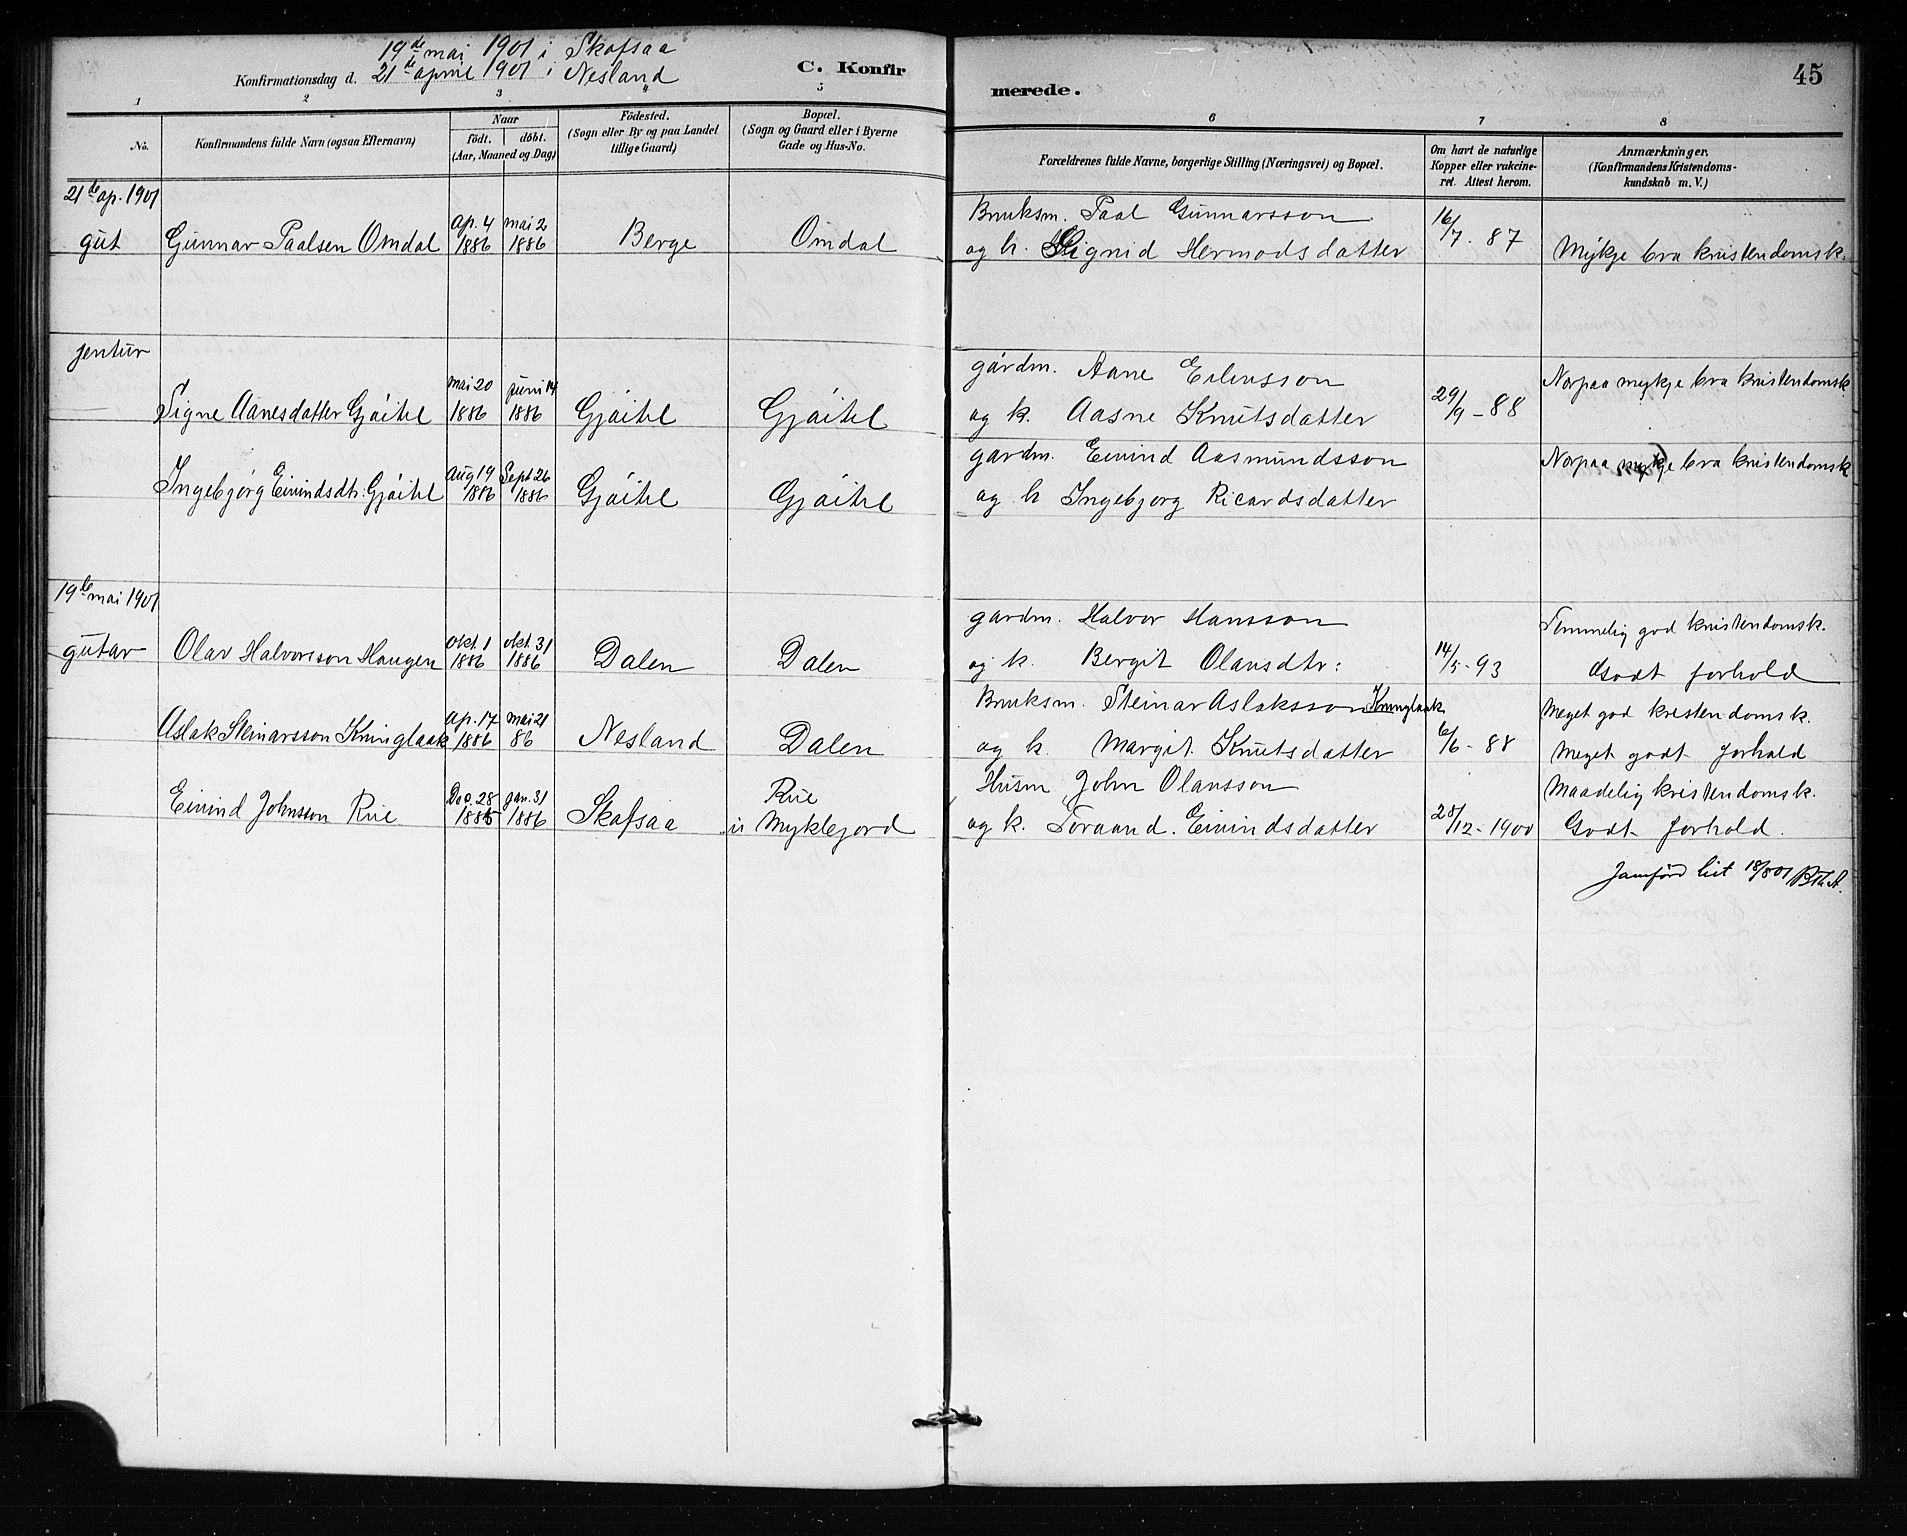 19de mai 1901 i Skafsaa
Konfirmationsdag d. 21de april 1901 i Nesland
C. Konfirmerede.
45
1 2 3 4 5 6 7 8
No.
Konfirmandens fulde Navn (ogsaa Efternavn)
Naar
födt. döbt.
(Aar, Maaned og Dag)
Födested.
(Sogn eller By og paa Landet
tillige Gaard)
Bopæl.
(Sogn og Gaard eller i Byerne
Gade og Hus-No.
Forældrenes fulde Navne, borgerlige Stilling (Næringsvei) og Bopæl.
Om havt de naturlige
Kopper eller vakcine-
ret. Attest herom.
Anmærkninger.
(Konfirmandens Kristendoms-
kundskab m. V.)
21de ap. 1901
gut Gunnar Paalsen Omdal Ap. 4 1886 mai 2 1886 Berge Omdal
Bruksm. Paal Gunnarsson
og k. Sigrid Hermodsdatter
16/7 - 87
Mykje bra kristendomsk.
jentur
Signe Aanesdatter Gjöitil mai 20 1886 juni 14 1886 Gjöitil Gjöitil
gårdm. Aane
og k. Aasne Knutsdatter
29/9 - 88
Norpaa mykje bra kristendomsk.
Ingebjörg Eivindsdtr: Gjöitil Aug 19 1886 Sept 26 1886 Gjöitil Gjöitil
gardm. Eivind Aasmundsson
og k Ingebjorg Ricardsdatter
Norpaa mykje bra kristendomsk
19de mai 1901
gutar Olav Halvorsson Haugen Okt. 1 1886 okt. 31 1886 Dalen Dalen
gardm. Halvor Hansson
og k. Bergit Olavsdtr:
14/5 - 93
Temmelig god kristendomsk.
Godt forhold
Aslak Steinarsson Kringlaak Ap. 17 1886 mai 21 86 Nesland Dalen
Bruksm. Steinar Aslaksson Kringlaak
og k. Margit Knutsdatter
6/6 - 88
Meget god kristendomsk.
Meget godt forhold
Eivind Johnsson Rue Dec. 28 1885 jan. 31 1886 Skafsaa Rue
Myklejord
Husm John Olavsson
og k. Toraand. Eivindsdatter
28/12 - 1900
Maadelig kristendomsk.
Godt forhold.
Jamförd hit 18/8 01 BThA.